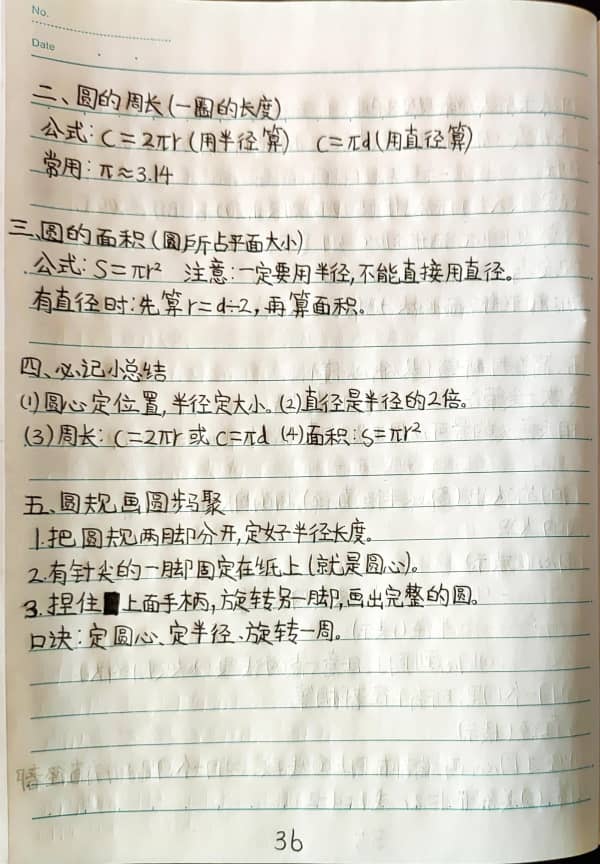 No.
Date
二、圆的周长(一圈的长度)
公式:C=2πr(用半径算) C=πd(用直径算)
常用:π≈3.14
三、圆的面积(圆所占平面大小)
公式:S=πr² 注意:一定要用半径,不能直接用直径。
有直径时:先算r=d÷2,再算面积。
四、必记小总结
(1)圆心定位置,半径定大小。(2)直径是半径的2倍。
(3)周长:C=2πr或C=πd (4)面积:S=πr²
五、圆规画圆步骤
1.把圆规两脚分开,定好半径长度。
2.有针尖的一脚固定在纸上(就是圆心)。
3.捏住上面手柄,旋转另一脚,画出完整的圆。
口诀:定圆心、定半径、旋转一周。
36